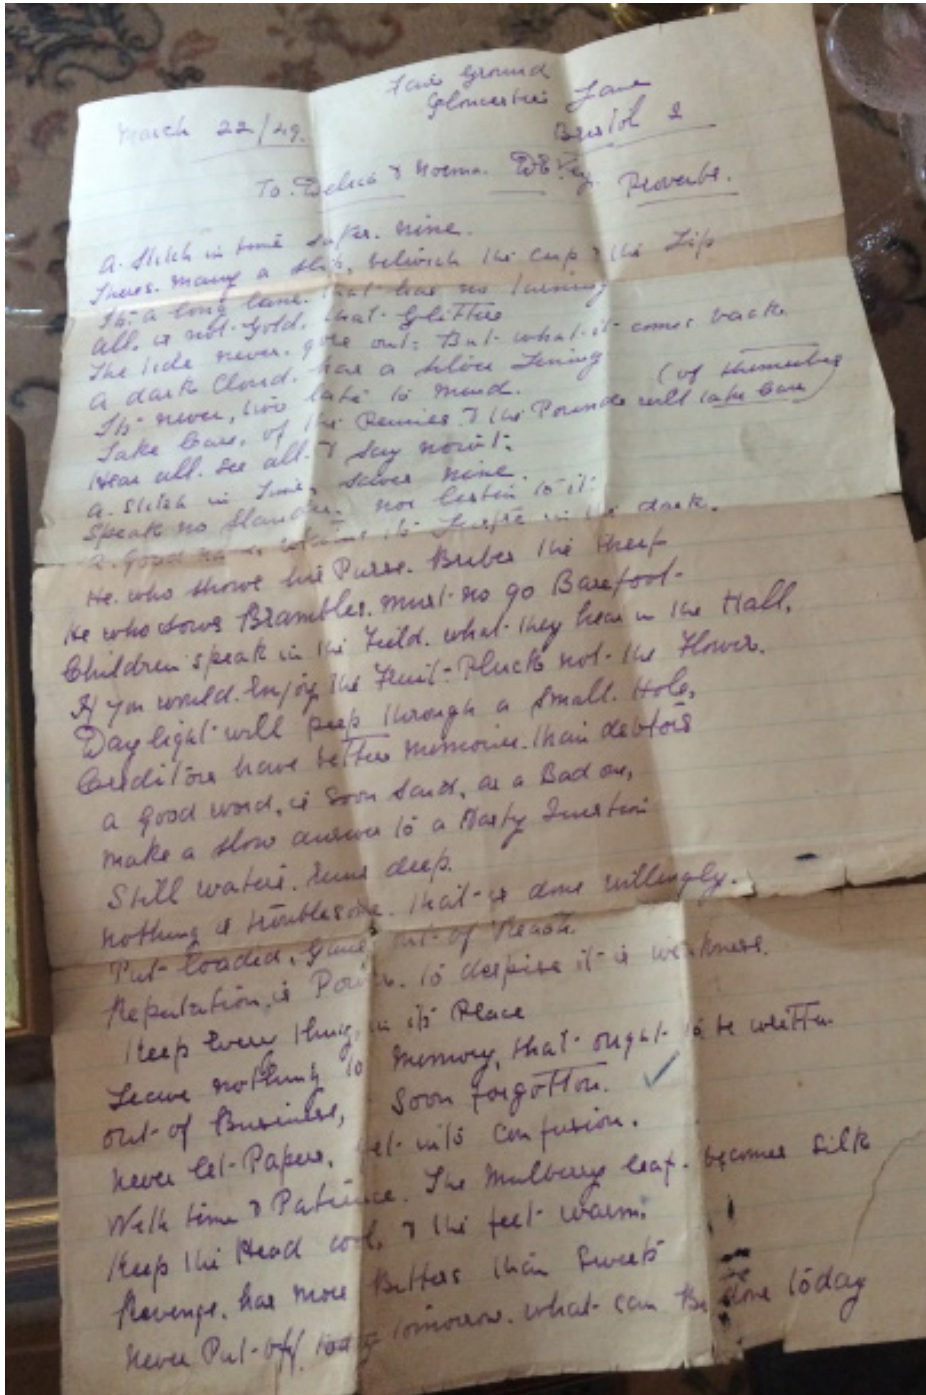 Fair Ground
Gloucester Lane
March 22/49. Bristol 2
To. Delia & Norma. Proverbs.
A. Stitch in time Safes. nine.
Theres. many a slip, betwich the cup & the Lip
Its. a long lane. that has no turning
all. is not. Gold. that. Glitters
The tide never. goes out: But what. it. comes back.
a dark Cloud. has a silver Lining
Its never, too late to mend.
Take Care, of the Pennies. & the Pounds will take Care (of themselves)
Hear all. See all. & Say nowt:
a. Stitch in Time, Saves nine
Speak no Slander. nor listen to it:
a. Good name retains its in the dark.
He. who shows his Purse. Bribes the theif
He who sows Brambles. must no go Barefoot.
Children speak in the Feild. what they hear in the Hall.
If you would. Enjoy, the Fruit. Pluck not. the Flower.
Daylight will peep through a small. Hole,
Creditors have better memories. than debtors
a good word, is Soon Said, as a Bad one,
make a slow answer to a Hasty Question
Still waters. Runs deep.
nothing is troublesome. that. is done willingly.
Put loaded, Guns out. of Reach.
Reputation, is Power. to despise it. is weakness.
Keep Every thing, in its Place
Leave nothing to memory, that. ought. to be written
out. of Business, Soon forgotton.
never let. Papers, get. into confusion.
With time & Patience. The Mulberry leaf. becomes Silk
Keep the Head cool, & the feet. warm:
Revenge. has more Bitters than Sweets
never Put. off. tomorrow. what. can Be done today